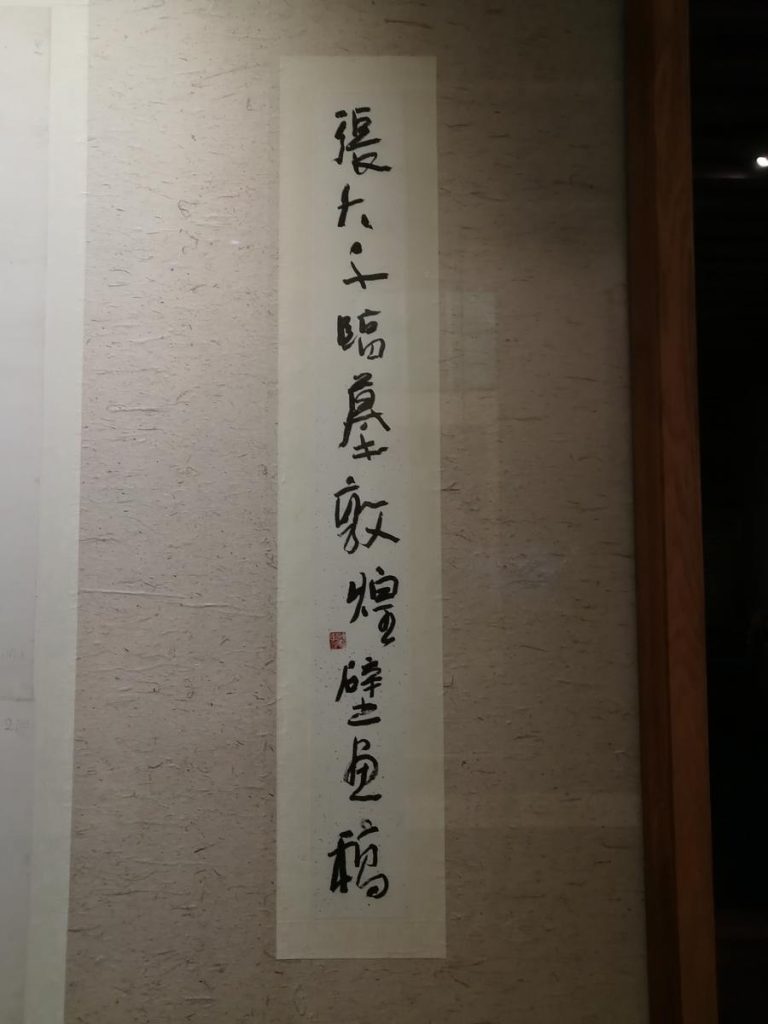 張大千臨摹敦煌壁画稿